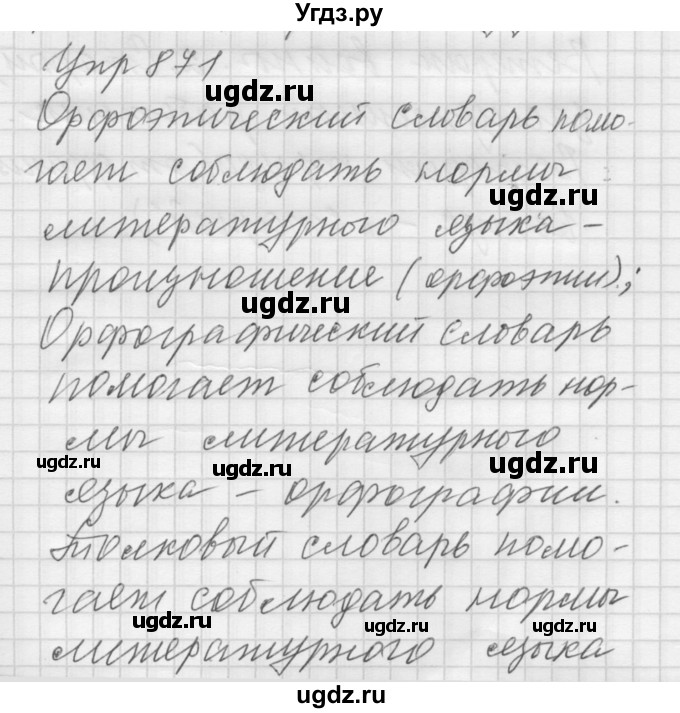 Угдз.ру
Упр 871
ugdz.ru
Орфоэпический словарь помо-
гает соблюдать нормы
ugdz.ru
литературного языка -
произношение (орфоэпии).;
ugdz.ru
Орфографический словарь
помогает соблюдать нор-
мы литературного
ugdz.ru ugdz.ru ugdz.ru
языка - орфографии.
Толковый словарь помо-
гает соблюдать нормы
ugdz.ru ugdz.ru ugdz.ru
литературного языка
ugdz.ru